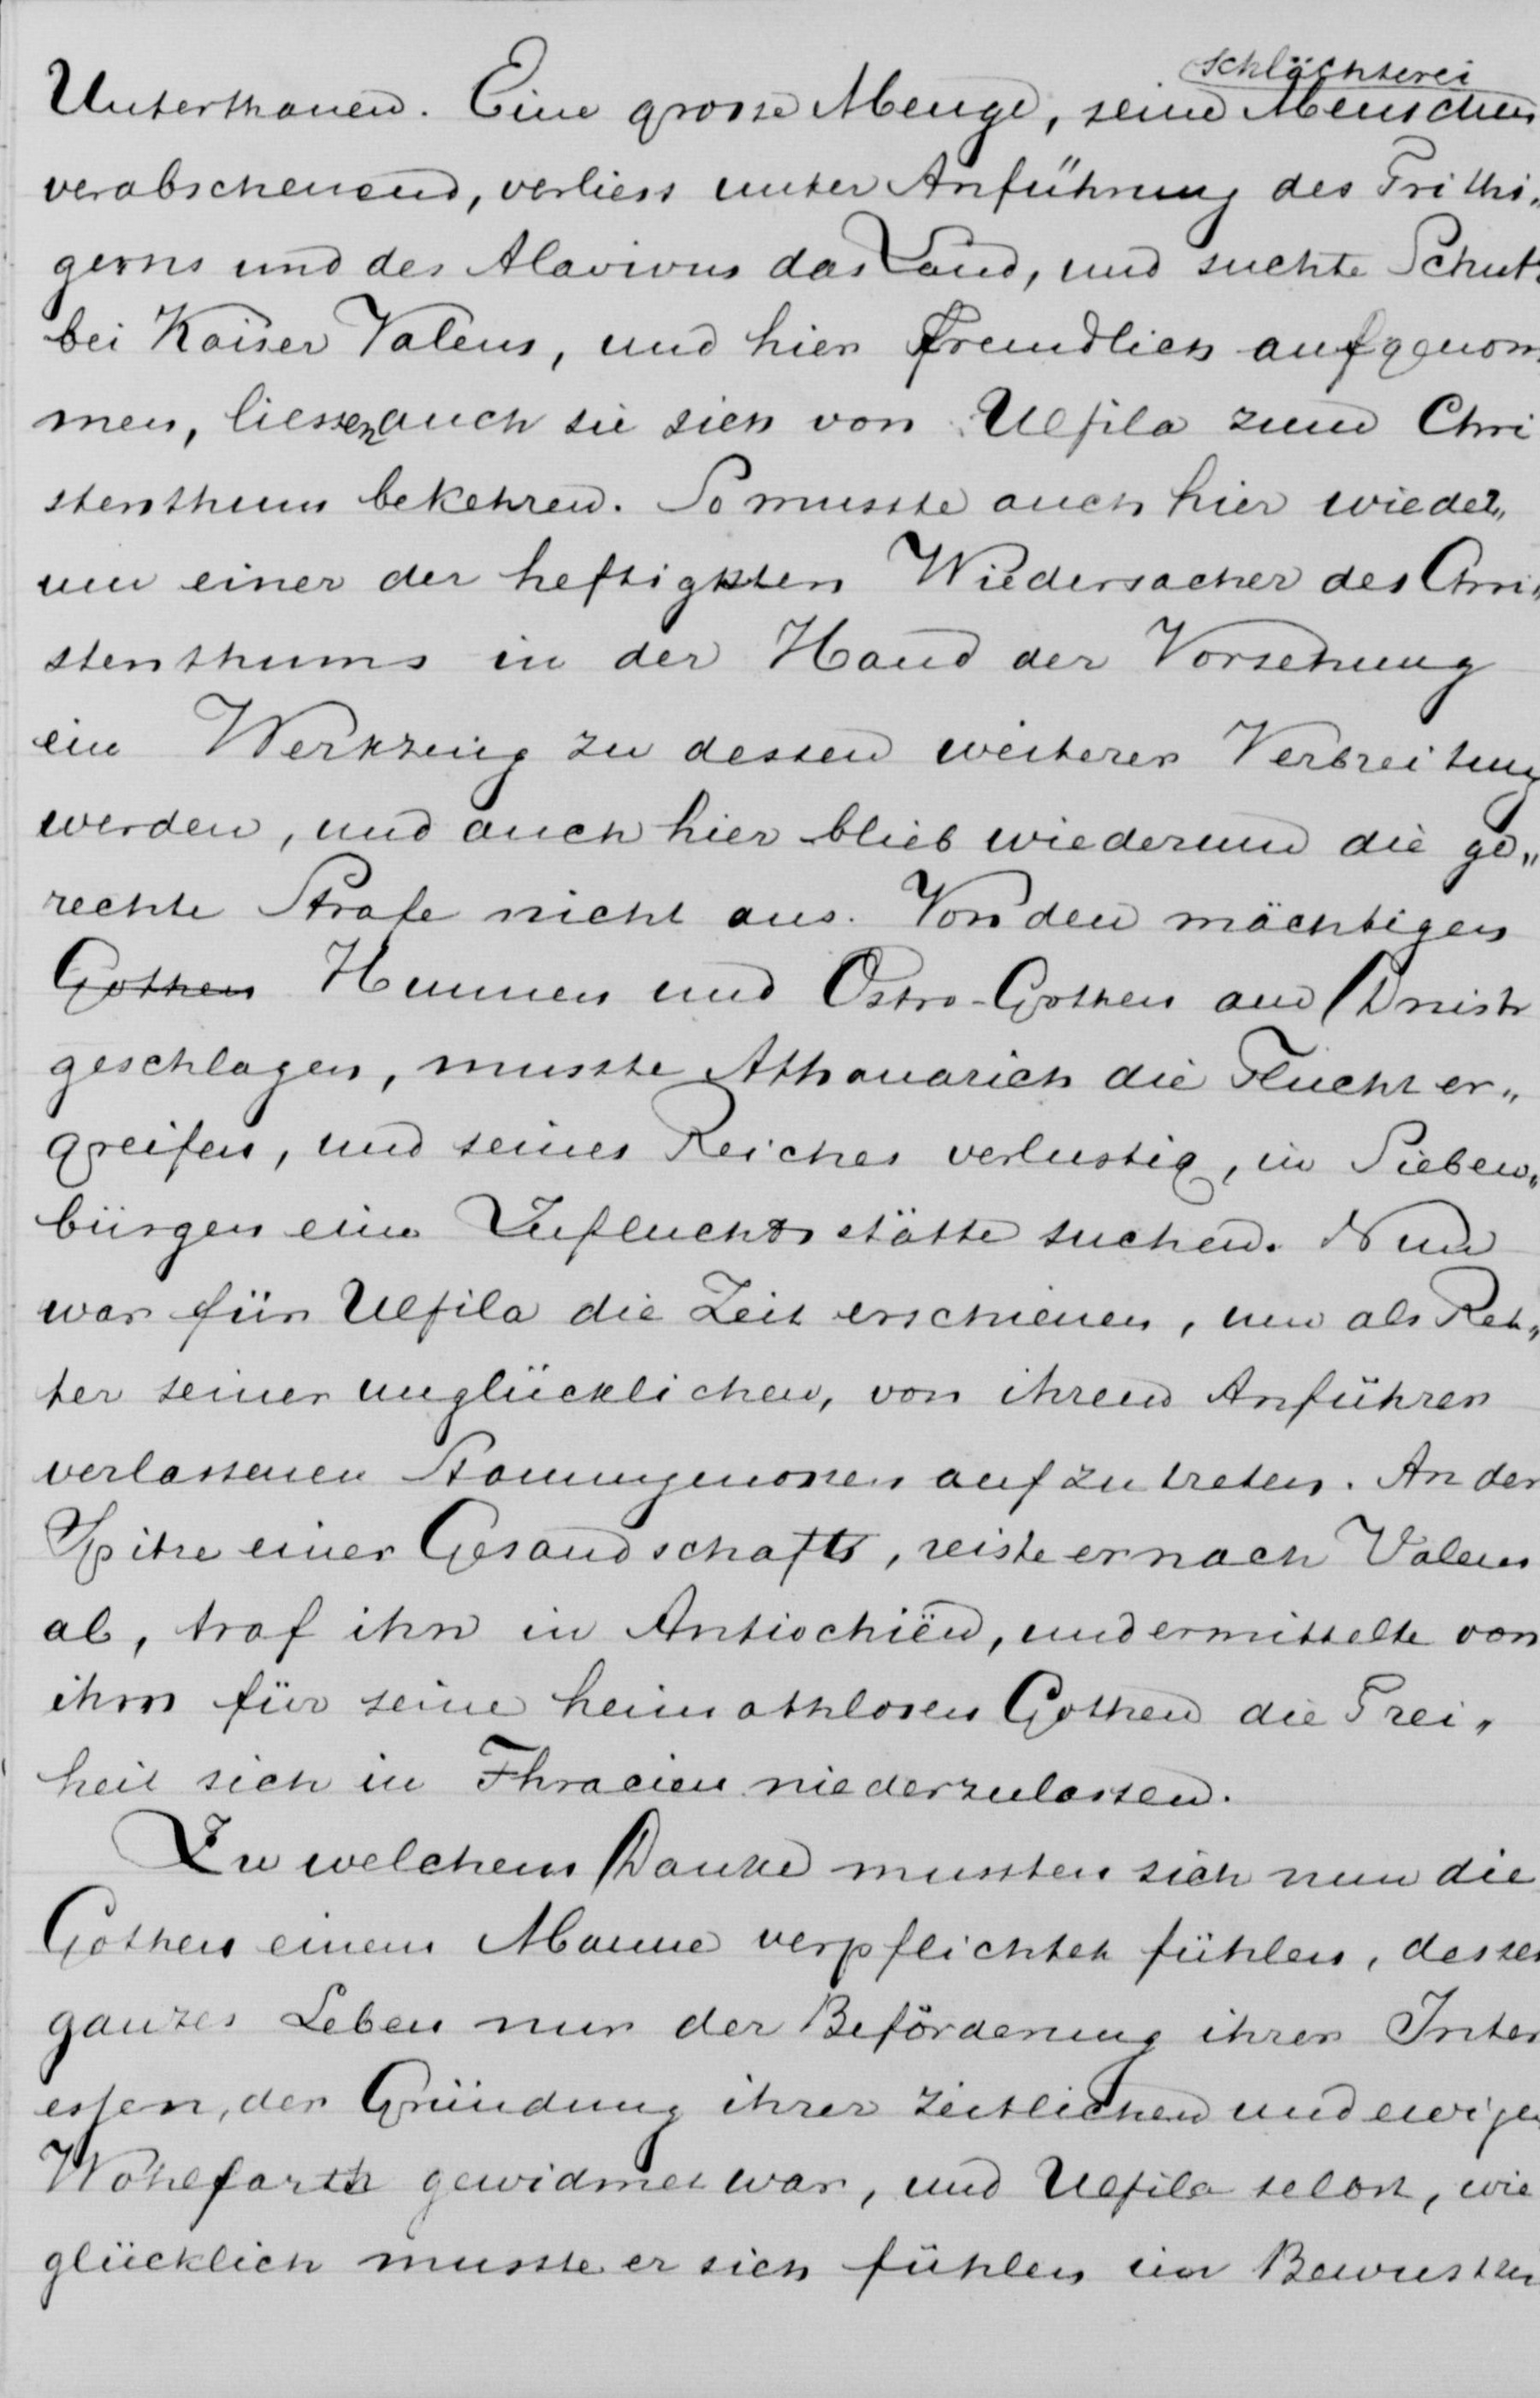 schlächterei
Unterthanen. Eine grosse Menge, seine Menschen
verabscheuend, verliess unter Anführung des Frithi„
gerns und des Alavivus das Land, und suchte Schutz
bei Kaiser Valens, und hier freundlich aufgenom
men, liessen auch sie sich von Ulfila zum Chri
stenthum bekehren. So musste auch hier wieder„
um einer der heftigsten Wiedersacher des Chri„
stenthums in der Hand der Vorsehung
ein Werkzeug zu dessen weiterer Verbreitung
werden, und auch hier blieb wiederum die ge„
rechte Strafe nicht aus. Von den mächtigen
Gothen Hunnen und Ostro-Gothen am Dnistr
geschlagen, musste Athanarich die Flucht er„
greifen, und seines Reiches verlustig, in Sieben„
bürgen eine Zufluchtsstätte suchen. Nun
war für Ulfila die Zeit erschienen, um als Ret„
ter seiner unglücklichen, von ihrem Anführer
verlassenen Stammgenossen aufzutreten. An der
Spitze einer Gesandschaft, reiste er nach Valens
ab, traf ihn in Antiochiën, und ermittelte von
ihm für seine heimathlosen Gothen die Frei„
heit sich in Thracien niederzulassen.
Zu welchem Danke mussten sich nun die
Gothen einem Manne verpflichtet fühlen, dessen
ganzes Leben nur der Beförderung ihrer Inter
essen, der Gründung ihrer zeitlichen und ewigen
Wohlfarth gewidmet war, und Ulfila selbst, wie
glücklich musste er sich fühlen im Bewustsein